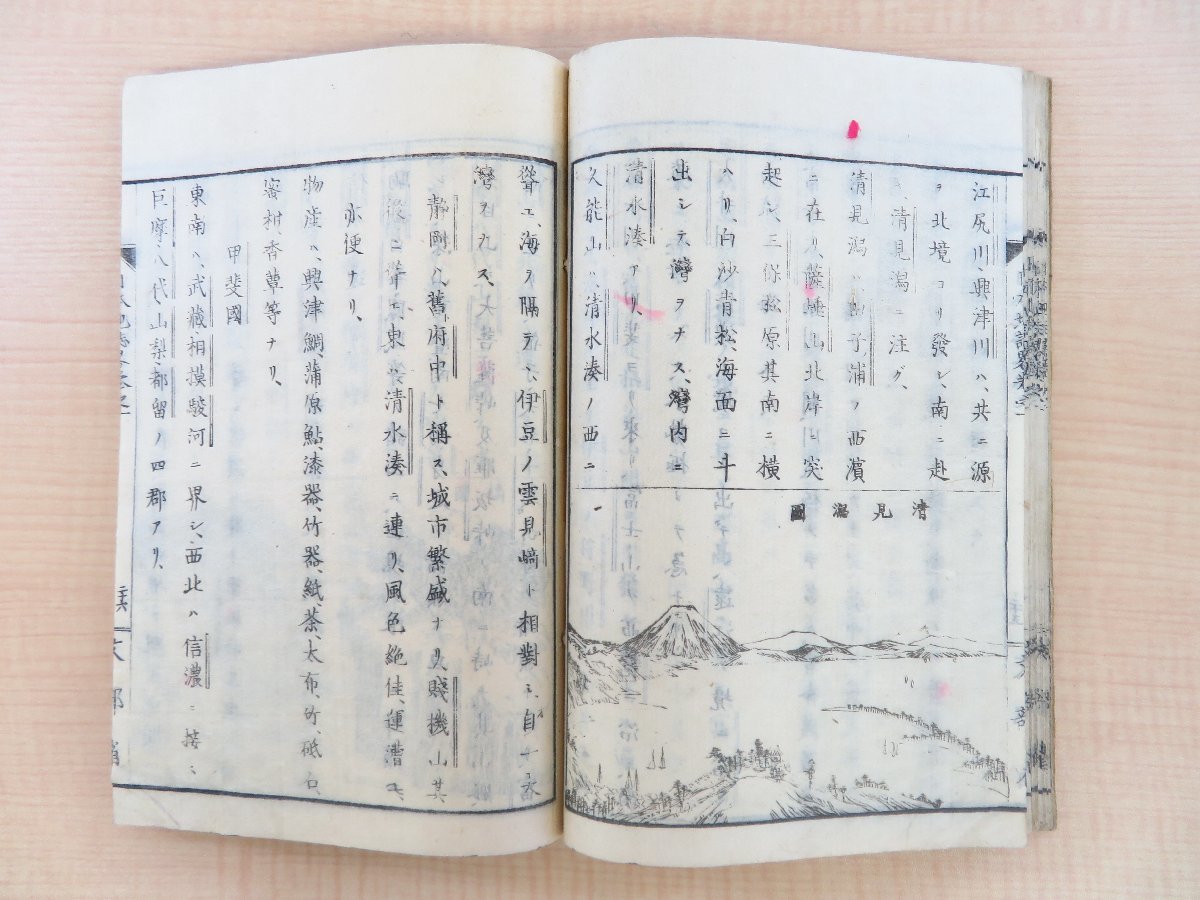 江尻川、興津川ハ、共ニ源
ヲ北境ヨリ發シ、南ニ赴
キ、清見潟ニ注グ、
清見潟ハ、田子ノ浦ノ西濱
ニ在リ、薩埵山北岸ニ突
起シ、三保松原其南ニ横
ハリ、白沙青松、海面ニ斗
出シテ、灣ヲナス、灣内ニ
清水湊アリ、
久能山ハ、清水湊ノ西ニ
清見潟圖
聳エ、海ヲ隔テヽ、伊豆ノ雲見﨑ト相對シ、自一
灣ヲナス、
靜岡ハ、舊府中ト稱ス、城市繁盛ナリ、賤機山其
後ニ聳エ、東ハ清水湊ニ連リ、風色絶佳、運漕モ
亦便ナリ、
物産ハ、興津鯛、蒲原鮎、漆器、竹器、紙、茶、太布、竹、砥石、
蜜柑香蕈等ナリ、
甲斐國
東南ハ、武藏相摸駿河ニ界シ、西北ハ信濃ニ接シ、
巨摩、八代、山梨、都留ノ四郡アリ、
文部省